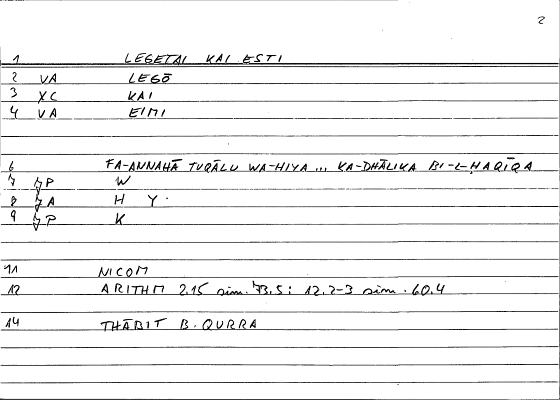 2
1 LEGETAI KAI ESTI
2 VA LEGŌ
3 XC KAI
4 VA EIMI
6 FA-ANNAHĀ TUQĀLU WA-HIYA ... KA-DHĀLIKA BI-L-ḤAQĪQA
7 P W
8 A H Y.
9 P K
11 NICOM
12 ARITHM 2.15 sim. 73.5: 12.2-3 sim. 60.4
14 THĀBIT B. QURRA